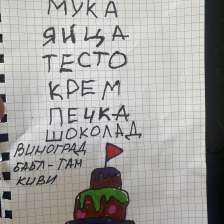 МУКА
ЯЙЦА
ТЕСТО
КРЕМ
ПЕЧКА
ШОКОЛАД
ВИНОГРАД
БАБЛ-ГАН
КИВИ